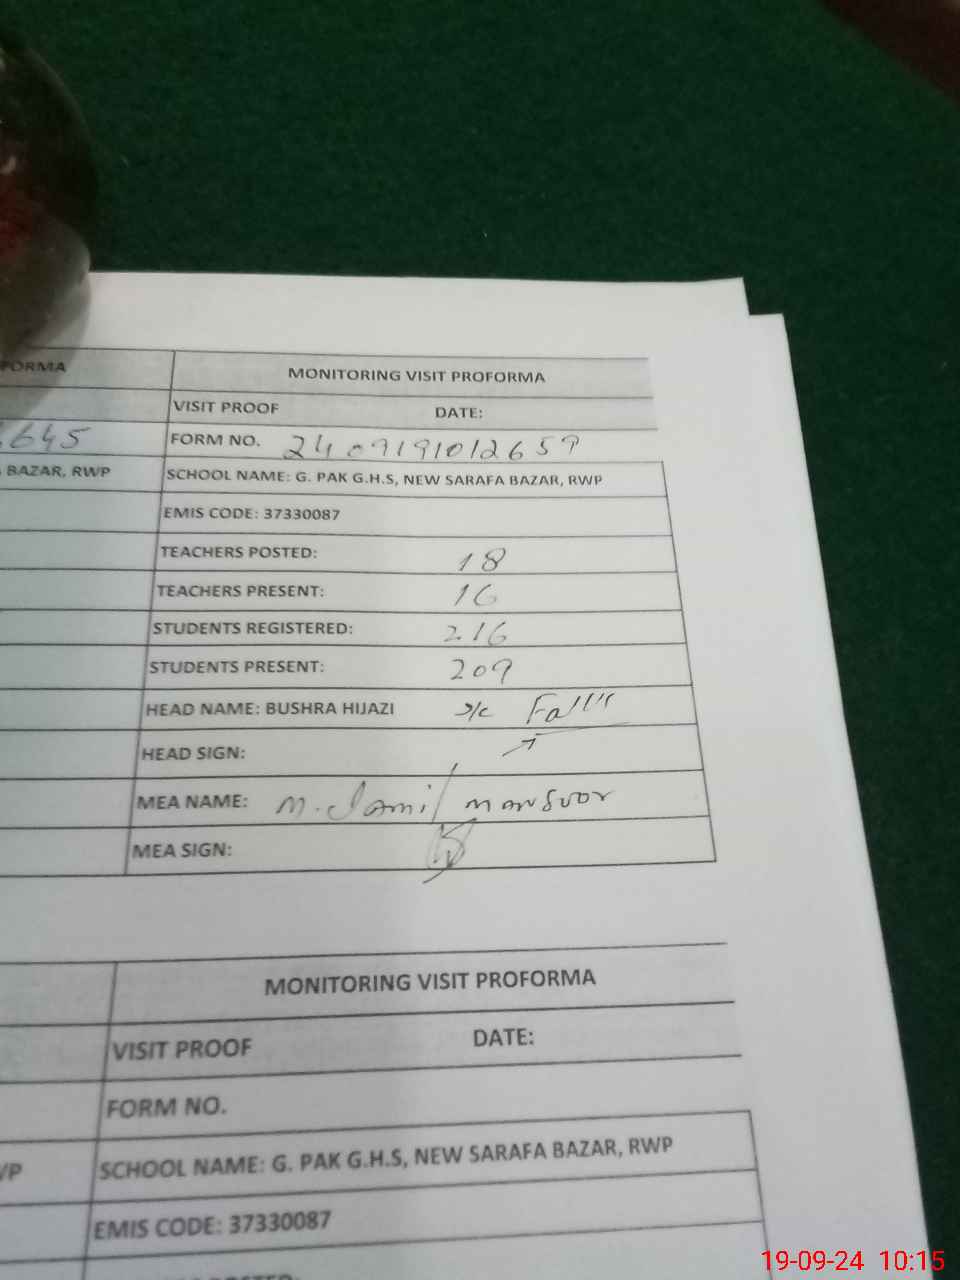 FORMA
MONITORING VISIT PROFORMA
VISIT PROOF DATE:
645
FORM NO. 2409191012659
BAZAR, RWP
SCHOOL NAME: G. PAK G.H.S, NEW SARAFA BAZAR, RWP
EMIS CODE: 37330087
TEACHERS POSTED: 18
TEACHERS PRESENT: 16
STUDENTS REGISTERED: 216
STUDENTS PRESENT: 209
HEAD NAME: BUSHRA HIJAZI
HEAD SIGN:
MEA NAME: M. Jamil mansoor
MEA SIGN:
MONITORING VISIT PROFORMA
VISIT PROOF DATE:
FORM NO.
WP
SCHOOL NAME: G. PAK G.H.S, NEW SARAFA BAZAR, RWP
EMIS CODE: 37330087
19-09-24 10:15